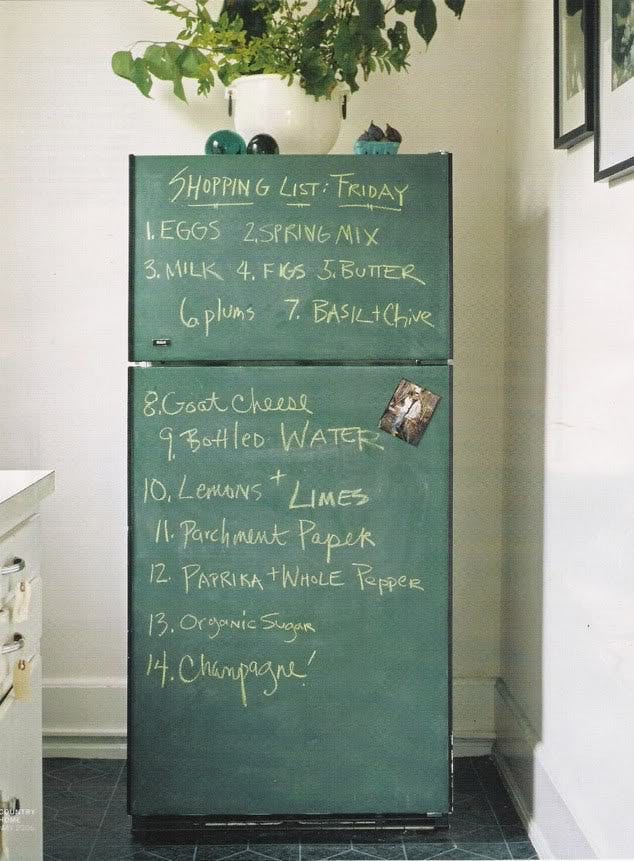 SHOPPING LIST: FRIDAY
1. EGGS 2. SPRING MIX
3. MILK 4. FIGS 5. BUTTER
6. plums 7. BASIL + Chive
8. Goat Cheese
9. Bottled WATER
10. Lemons + LIMES
11. Parchment Paper
12. PAPRIKA + WHOLE Pepper
13. Organic Sugar
14. Champagne!
13
COUNTRY
HOME